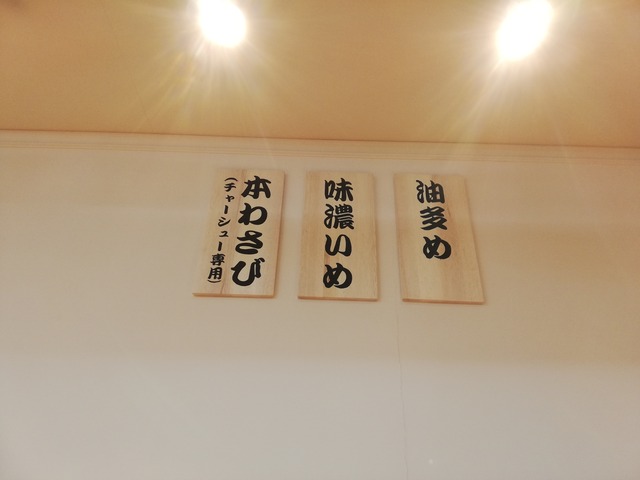 油多め
味濃いめ
本わさび
(チャーシュー専用)